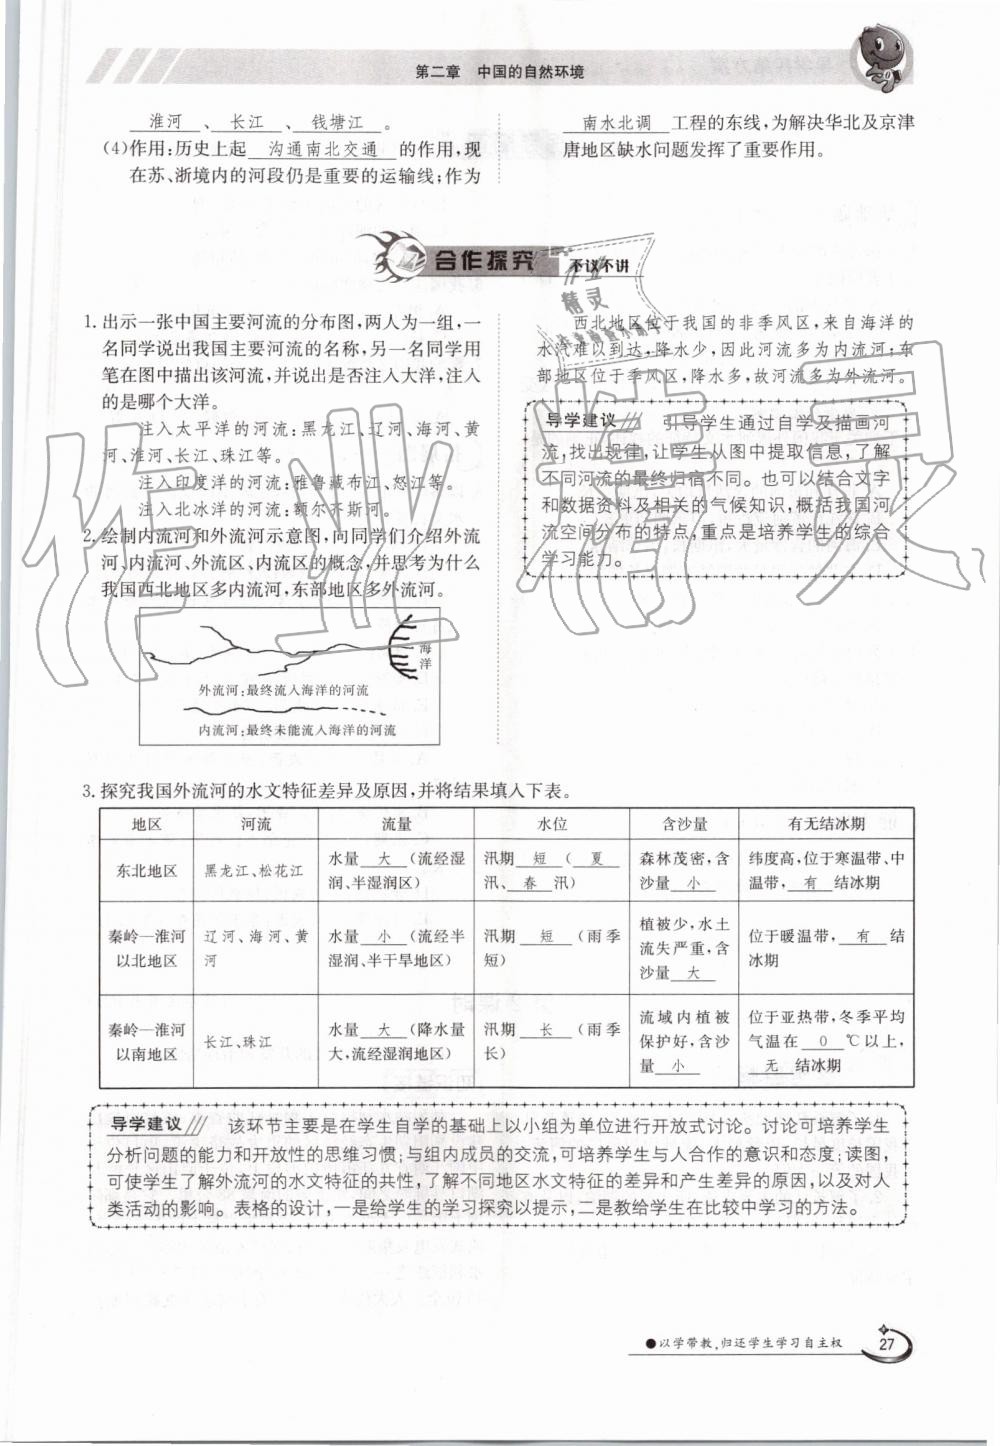 第二章 中国的自然环境
淮河、长江、钱塘江。
(4)作用:历史上起 沟通南北交通 的作用,现
在苏、浙境内的河段仍是重要的运输线;作为
南水北调 工程的东线,为解决华北及京津
唐地区缺水问题发挥了重要作用。
合作探究 不议不讲
1. 出示一张中国主要河流的分布图,两人为一组,一
名同学说出我国主要河流的名称,另一名同学用
笔在图中描出该河流,并说出是否注入大洋,注入
的是哪个大洋。
注入太平洋的河流:黑龙江、辽河、海河、黄
河、淮河、长江、珠江等。
注入印度洋的河流:雅鲁藏布江、怒江等。
注入北冰洋的河流:额尔齐斯河。
2. 绘制内流河和外流河示意图,向同学们介绍外流
河、内流河、外流区、内流区的概念,并思考为什么
我国西北地区多内流河,东部地区多外流河。
海
洋
外流河:最终流入海洋的河流
内流河:最终未能流入海洋的河流
西北地区位于我国的非季风区,来自海洋的
水汽难以到达,降水少,因此河流多为内流河;东
部地区位于季风区,降水多,故河流多为外流河。
导学建议 引导学生通过自学及描画河
流,找出规律,让学生从图中提取信息,了解
不同河流的最终归宿不同。也可以结合文字
和数据资料及相关的气候知识,概括我国河
流空间分布的特点,重点是培养学生的综合
学习能力。
作业精灵
作业
精灵
3. 探究我国外流河的水文特征差异及原因,并将结果填入下表。
地区 河流 流量 水位 含沙量 有无结冰期
东北地区 黑龙江、松花江 水量 大 (流经湿
润、半湿润区) 汛期 短 ( 夏
汛、 春 汛) 森林茂密,含
沙量 小 纬度高,位于寒温带、中
温带, 有 结冰期
秦岭—淮河
以北地区 辽河、海河、黄
河 水量 小 (流经半
湿润、半干旱地区) 汛期 短 (雨季
短) 植被少,水土
流失严重,含
沙量 大 位于暖温带, 有 结
冰期
秦岭—淮河
以南地区 长江、珠江 水量 大 (降水量
大,流经湿润地区) 汛期 长 (雨季
长) 流域内植被
保护好,含沙
量 小 位于亚热带,冬季平均
气温在 0 ℃以上,
无 结冰期
导学建议 该环节主要是在学生自学的基础上以小组为单位进行开放式讨论。讨论可培养学生
分析问题的能力和开放性的思维习惯;与组内成员的交流,可培养学生与人合作的意识和态度;读图,
可使学生了解外流河的水文特征的共性,了解不同地区水文特征的差异和产生差异的原因,以及对人
类活动的影响。表格的设计,一是给学生的学习探究以提示,二是教给学生在比较中学习的方法。
●以学带教,归还学生学习自主权
27